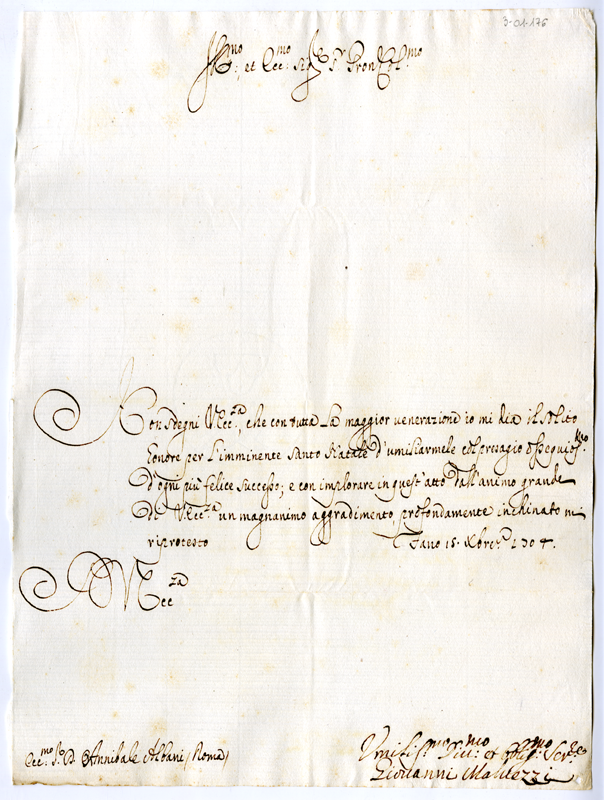 3-01-176
Ill:mo et Ecc:mo Sig.r P.ron Col.mo
Non sdegni V.Ecc.za, che con tutta la maggior venerazione io mi dia il solito
honore per l'imminente Santo Natale d'umiliarmele col presagio ossequios.mo
d'ogni più felice successo; e con implorare in quest'atto dall'animo grande
di V.Ecc.za un magnanimo aggradimento, profondamente inchinato mi
riprotesto Fano 15. Xbre 1704.
V Ecc.za
Ecc.mo S. D. Annibale Albani (Roma)
Umiliss.mo Div.mo et obblig.mo Ser.re
Giovanni Malvezzi